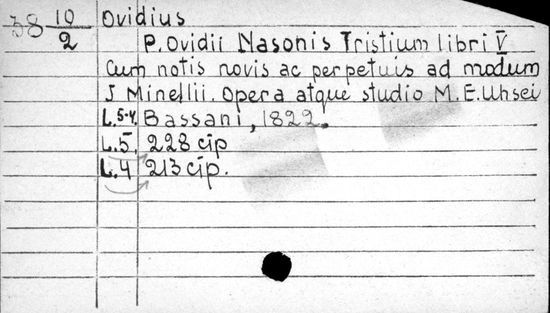 38 10/2 Ovidius
P. Ovidii Nasonis Tristium libri V
Cum notis novis ac perpetuis ad modum
J Minellii. Opera atque studio M.E. Uhsei
L.5-4. Bassani, 1822.
L.5. 228 cīp
L.4 213 cīp.